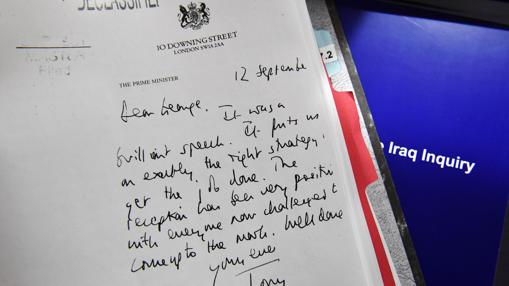 DECLASSIFIED
10 DOWNING STREET
LONDON SW1A 2AA
THE PRIME MINISTER
12 Septembe
Dear George. It was a
brilliant speech. It puts us
on exactly the right strategy,
get the job done. The
reception has been very positive
with everyone now challenged t
come up to the mark. Well done
Yours ever
Tony
7.2
Iraq Inquiry